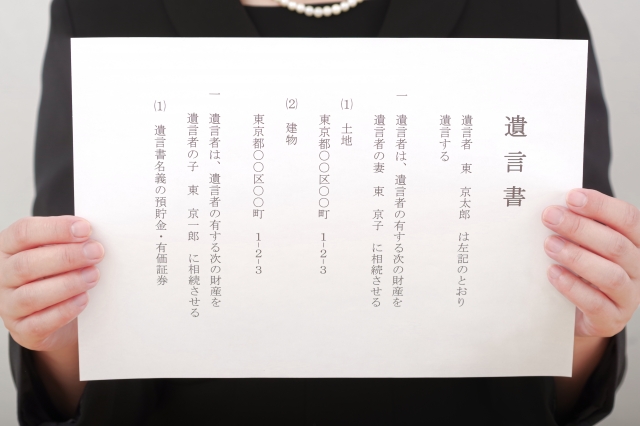 遺言書
遺言者 東 京太郎 は左記のとおり
遺言する
一 遺言者は、遺言者の有する次の財産を
遺言者の妻 東 京子 に相続させる
⑴ 土地
東京都〇〇区〇〇町 1-2-3
⑵ 建物
東京都〇〇区〇〇町 1-2-3
一 遺言者は、遺言者の有する次の財産を
遺言者の子 東 京一郎 に相続させる
⑴ 遺言書名義の預貯金・有価証券